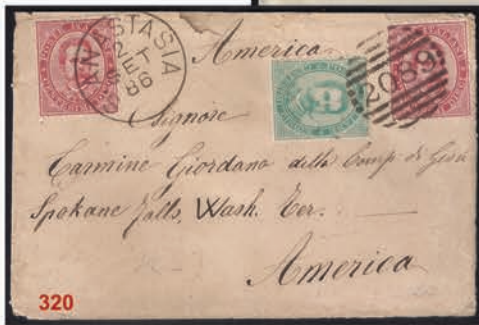 America
S. ANASTASIA
2 SET 86
2089
Signore
Carmine Giordano della Comp. di Gesù
Spokane Falls, Wash. Ter.
America
320